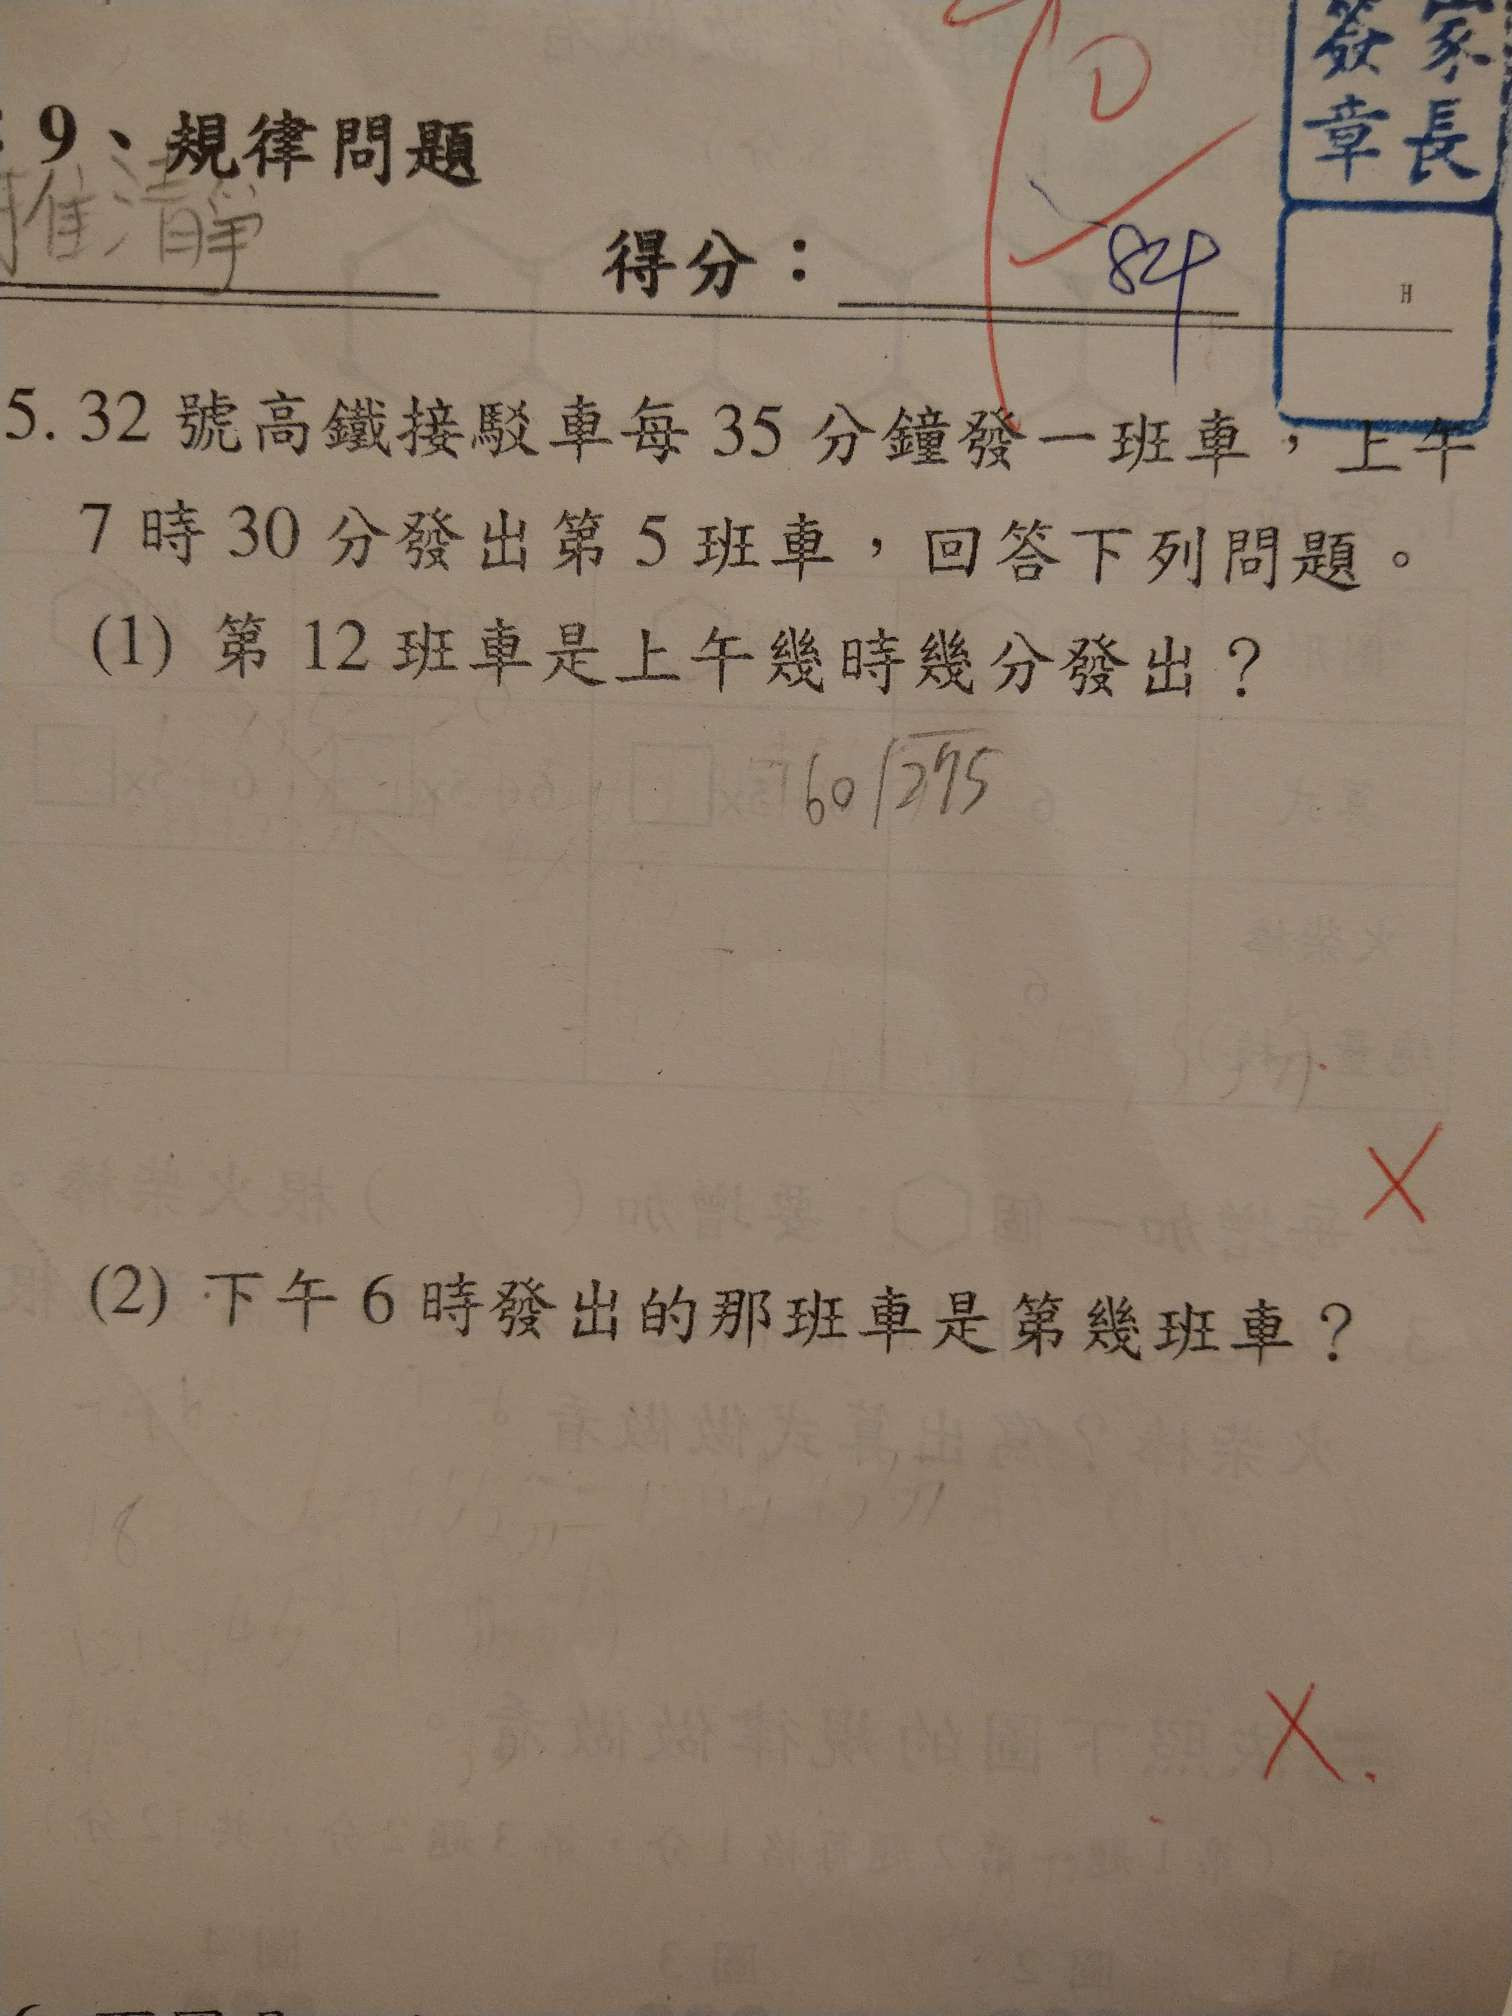 家長
簽章
9、規律問題
清靜
得分：
84
5. 32 號高鐵接駁車每 35 分鐘發一班車，上午
7 時 30 分發出第 5 班車，回答下列問題。
(1) 第 12 班車是上午幾時幾分發出？
60 275
(2) 下午 6 時發出的那班車是第幾班車？